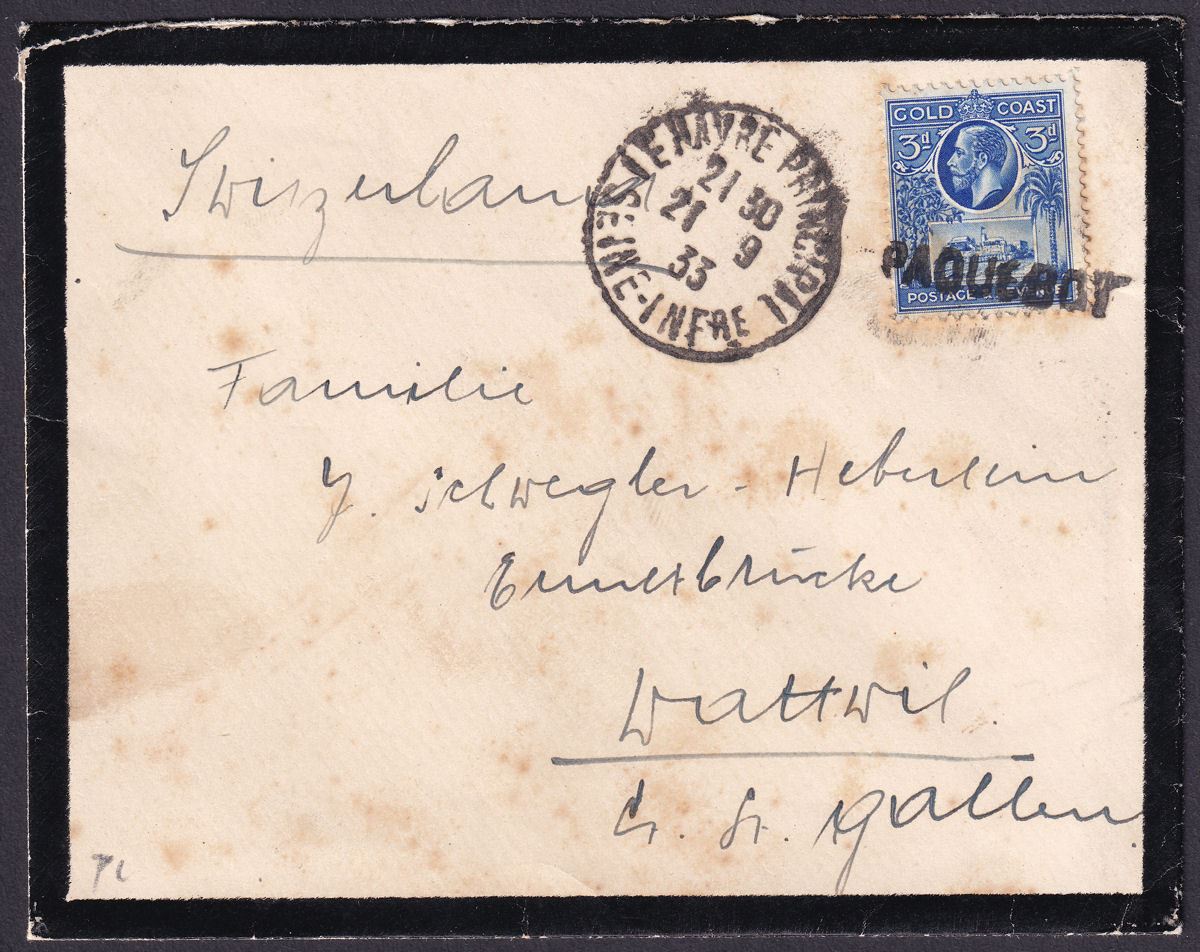 Switzerland
LE HAVRE PRINCIPAL
21 30
21 9
33
SEINE-INFRE
GOLD COAST
3d 3d
POSTAGE & REVENUE
PAQUEBOT
Familie
J. Schwegler - Heberlein
Emmetbrücke
Wattwil.
St. Gallen